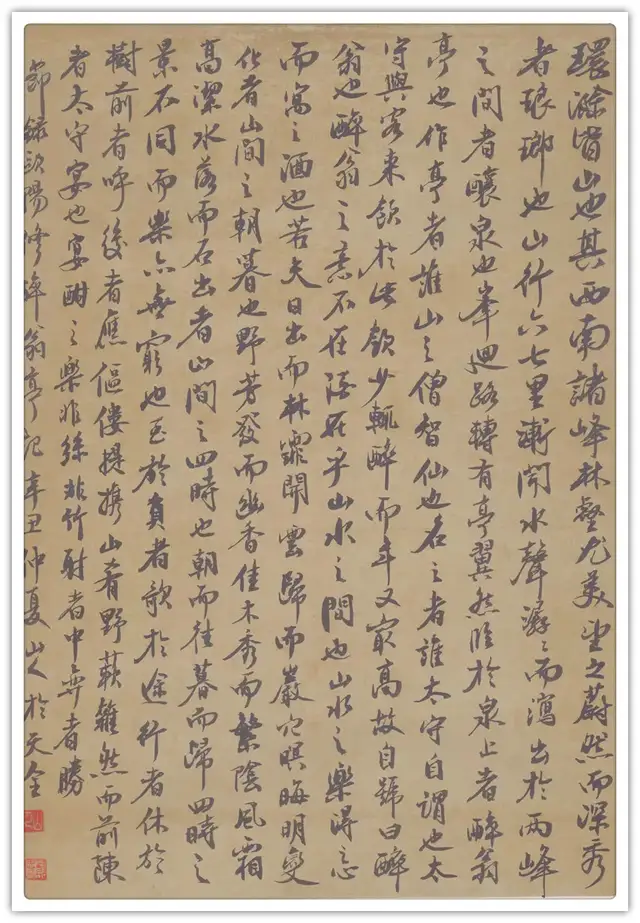 環滁皆山也其西南諸峰林壑尤美望之蔚然而深秀
者琅瑯也山行六七里漸聞水聲潺々而瀉出於兩峰
之間者釀泉也峯迴路轉有亭翼然臨於泉上者醉翁
亭也作亭者誰山之僧智仙也名之者誰太守自謂也太
守與客來飲於此飲少輒醉而年又最高故自號曰醉
翁也醉翁之意不在酒在乎山水之間也山水之樂得之心
而寓之酒也若夫日出而林霏開雲歸而巖穴暝晦明變
化者山間之朝暮也野芳發而幽香佳木秀而繁陰風霜
高潔水落而石出者山間之四時也朝而往暮而歸四時之
景不同而樂亦無窮也至於負者歌於途行者休於
樹前者呼後者應傴僂提攜山肴野蔌雜然而前陳
者太守宴也宴酣之樂非絲非竹射者中弈者勝
節錄歐陽修醉翁亭記辛丑仲夏山人於天全